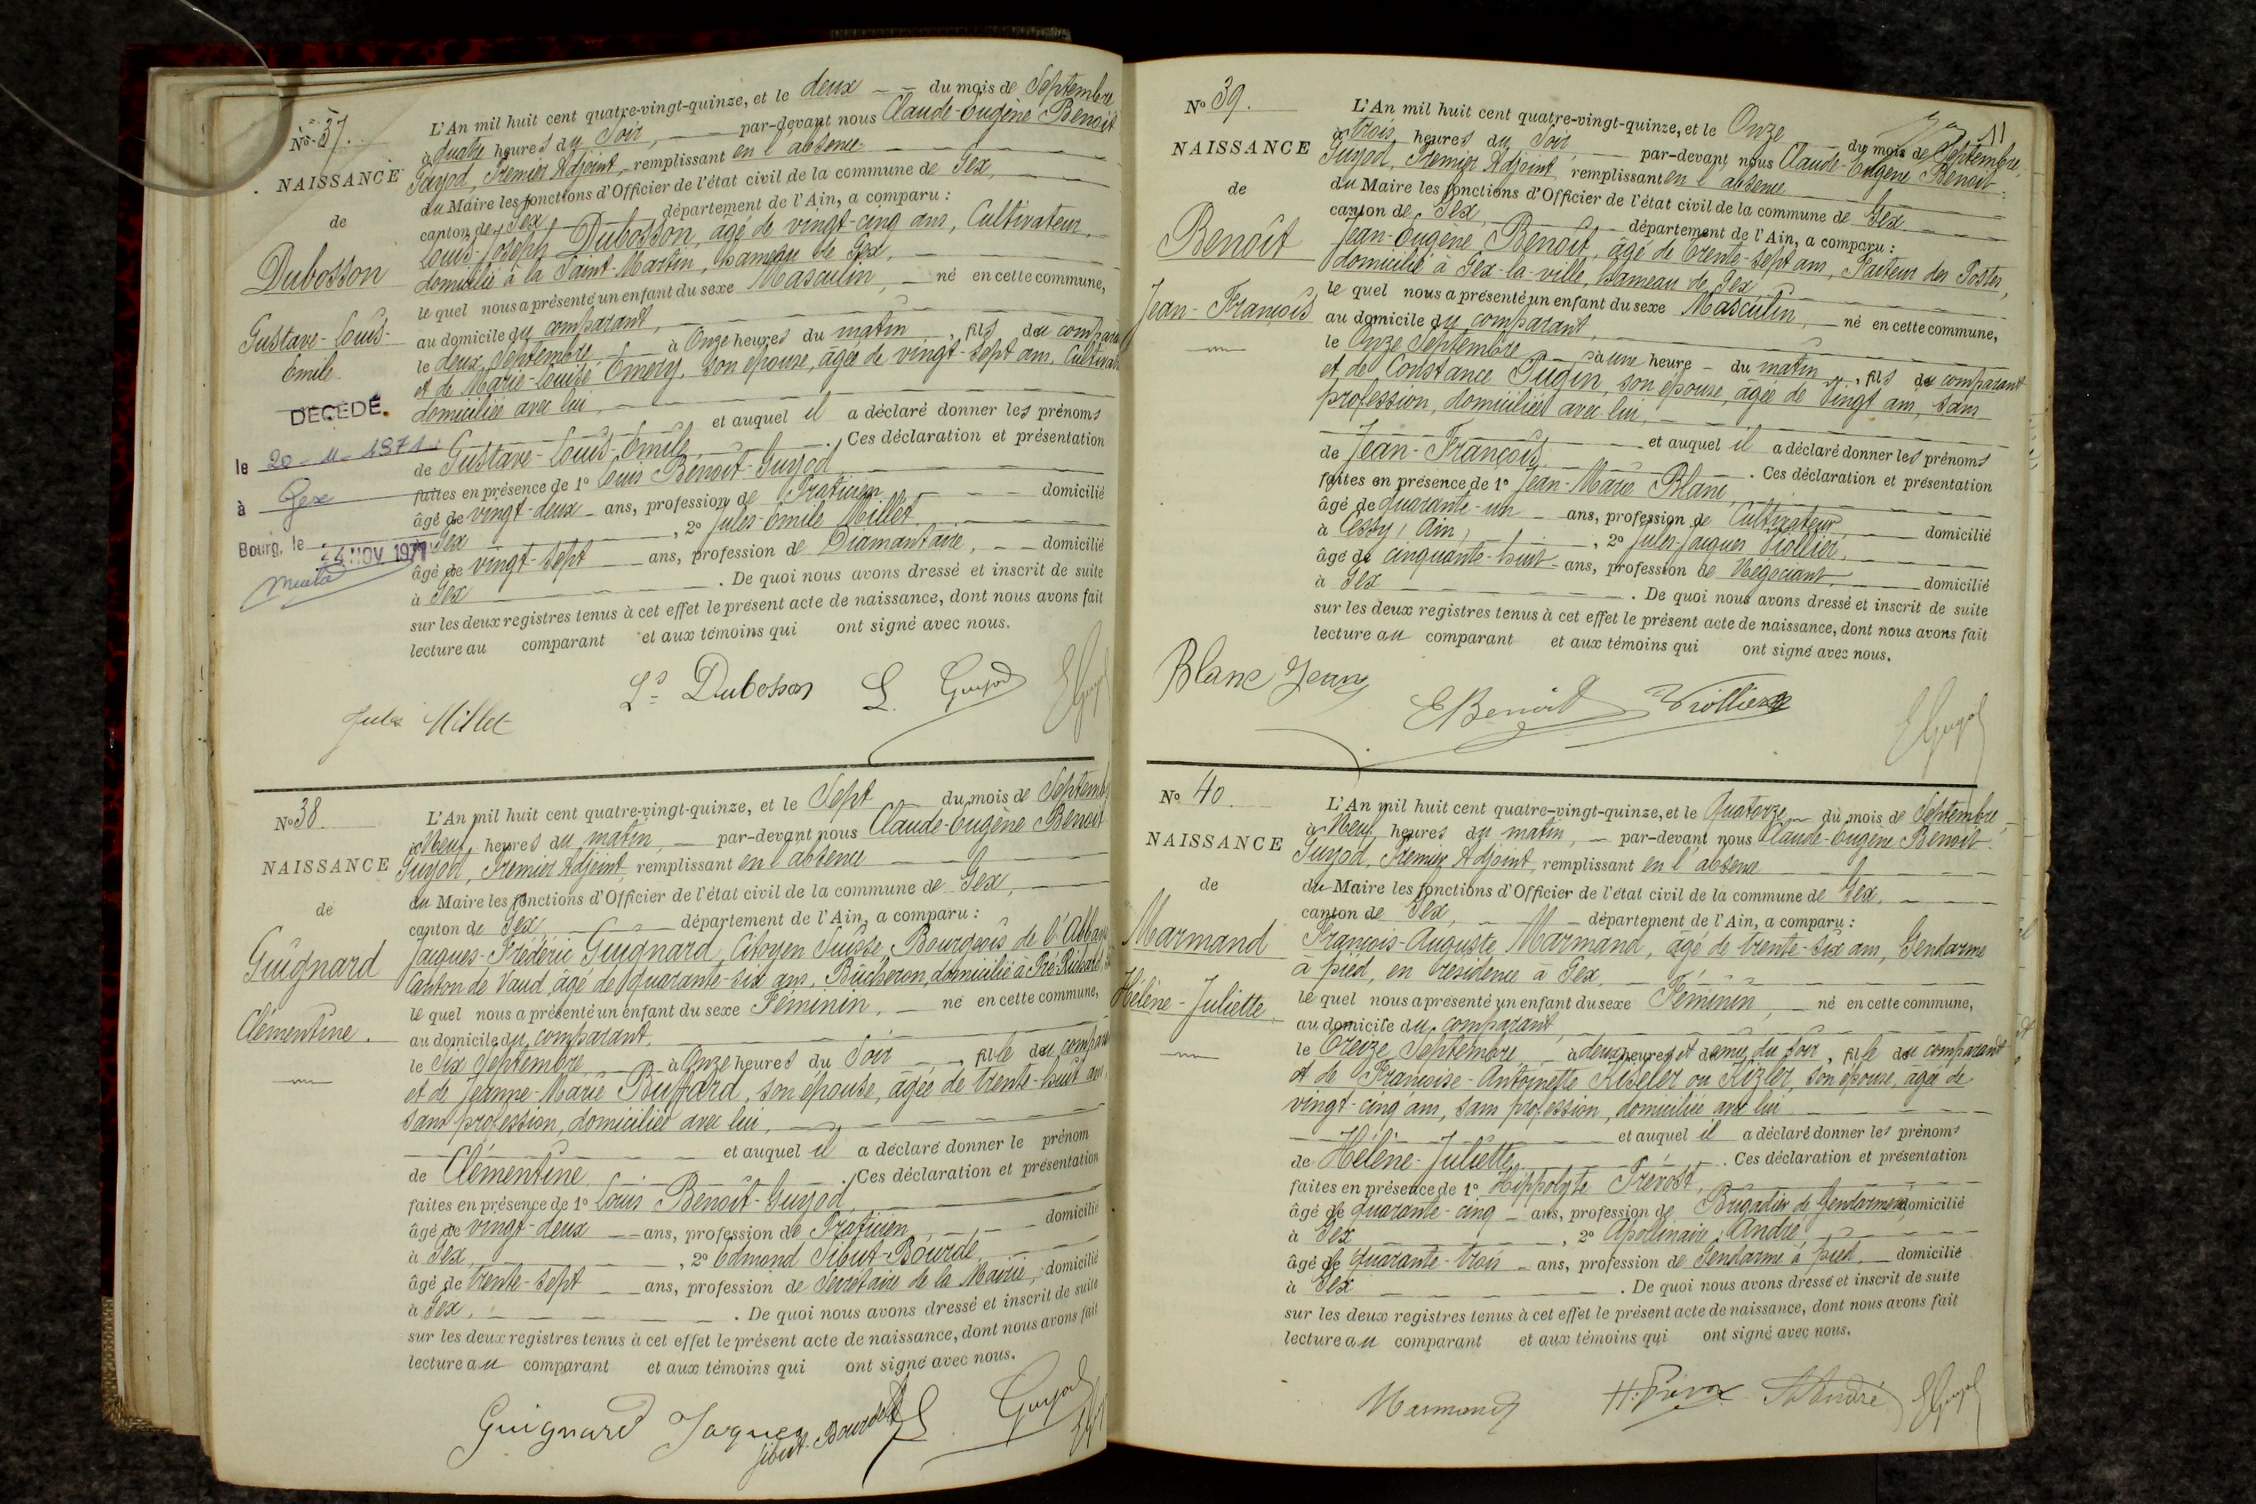 No 37.
NAISSANCE
de
Dubosson
Gustave-Louis-
Emile
DÉCÉDÉ.
le 20-11-1971
à Gex
Bourg, le 24 NOV 1971
L'An mil huit cent quatre-vingt-quinze, et le deux du mois de Septembre
à quatre heures du Soir, par-devant nous Claude-Eugène Benoit
Guyod, Premier Adjoint, remplissant en l'absence
du Maire les fonctions d'Officier de l'état civil de la commune de Gex,
canton de Gex département de l'Ain, a comparu :
Louis-Joseph Dubosson, âgé de vingt-cinq ans, Cultivateur,
domicilié à la Saint-Martin, hameau de Gex,
le quel nous a présenté un enfant du sexe Masculin, né en cette commune,
au domicile du comparant,
le deux Septembre à Onze heures du matin, fils du compara
et de Marie-Louise Emery, son épouse, âgée de vingt-sept ans, Cultivat
domiciliée avec lui,
et auquel il a déclaré donner les prénoms
de Gustave-Louis-Emile. Ces déclaration et présentation
faites en présence de 1o Louis Benoit-Guyod
âgé de vingt-deux ans, profession de Praticien domicilié
à Gex, 2o Jules-Emile Millet
âgé de vingt-sept ans, profession de Diamantaire, domicilié
à Gex. De quoi nous avons dressé et inscrit de suite
sur les deux registres tenus à cet effet le présent acte de naissance, dont nous avons fait
lecture au comparant et aux témoins qui ont signé avec nous.
Ls Dubosson L. Guyod EGuyod
Jules Millet
No 38.
NAISSANCE
de
Guignard
Clémentine.
L'An mil huit cent quatre-vingt-quinze, et le Sept du mois de Septemb
à Neuf heures du matin, par-devant nous Claude-Eugène Benoit
Guyod, Premier Adjoint, remplissant en l'absence
du Maire les fonctions d'Officier de l'état civil de la commune de Gex,
canton de Gex département de l'Ain, a comparu :
Jacques-Frédéric Guignard, Citoyen Suisse, Bourgeois de l'Abbaye
Canton de Vaud, âgé de quarante-six ans, Bûcheron, domicilié à
le quel nous a présenté un enfant du sexe Féminin, né en cette commune,
au domicile du comparant,
le Six Septembre à Onze heures du Soir, fille du compara
et de Jeanne-Marie Buffard, son épouse, âgée de trente-huit ans,
sans profession, domiciliée avec lui,
et auquel il a déclaré donner le prénom
de Clémentine. Ces déclaration et présentation
faites en présence de 1o Louis Benoit-Guyod,
âgé de vingt-deux ans, profession de Praticien, domicilié
à Gex, 2o Edmond Sibut-Bourde,
âgé de trente-sept ans, profession de Secrétaire de la Mairie, domicilié
à Gex. De quoi nous avons dressé et inscrit de suite
sur les deux registres tenus à cet effet le présent acte de naissance, dont nous avons fait
lecture au comparant et aux témoins qui ont signé avec nous.
Guignard Jacques Sibut-Bourde L Guyod
11
No 39.
NAISSANCE
de
Benoît
Jean-François
L'An mil huit cent quatre-vingt-quinze, et le Onze du mois de Septembre,
à trois heures du Soir, par-devant nous Claude-Eugène Benoit-
Guyod, Premier Adjoint, remplissant en l'absence
du Maire les fonctions d'Officier de l'état civil de la commune de Gex
canton de Gex, département de l'Ain, a comparu :
Jean-Eugène Benoît, âgé de trente-sept ans, Facteur des Postes,
domicilié à Gex-la-ville, hameau de Gex
le quel nous a présenté un enfant du sexe Masculin, né en cette commune,
au domicile du comparant,
le Onze Septembre à une heure du matin, fils du comparant
et de Constance Pugin, son épouse, âgée de vingt ans, sans
profession, domiciliée avec lui,
et auquel il a déclaré donner les prénoms
de Jean-François. Ces déclaration et présentation
faites en présence de 1o Jean-Marie Blanc,
âgé de quarante-un ans, profession de Cultivateur, domicilié
à Cessy (Ain), 2o Jules-Jacques Viollier,
âgé de cinquante-huit ans, profession de Négociant domicilié
à Gex. De quoi nous avons dressé et inscrit de suite
sur les deux registres tenus à cet effet le présent acte de naissance, dont nous avons fait
lecture au comparant et aux témoins qui ont signé avec nous.
Blanc Jean
EBenoit Viollier EGuyod
No 40.
NAISSANCE
de
Marmand
Hélène-Juliette
L'An mil huit cent quatre-vingt-quinze, et le Quatorze du mois de Septembre,
à Neuf heures du matin, par-devant nous Claude-Eugène Benoit-
Guyod, Premier Adjoint, remplissant en l'absence
du Maire les fonctions d'Officier de l'état civil de la commune de Gex,
canton de Gex, département de l'Ain, a comparu :
François-Auguste Marmand, âgé de trente-six ans, Gendarme
à pied, en résidence à Gex,
le quel nous a présenté un enfant du sexe Féminin, né en cette commune,
au domicile du comparant,
le Treize Septembre à deux heures et demie du soir, fille du comparant
et de Françoise-Antoinette Kiseler ou Kizler, son épouse, âgée de
vingt-cinq ans, sans profession, domiciliée avec lui
et auquel il a déclaré donner les prénoms
de Hélène-Juliette. Ces déclaration et présentation
faites en présence de 1o Hippolyte Prévost,
âgé de quarante-cinq ans, profession de Brigadier de Gendarmerie domicilié
à Gex, 2o Apollinaire André,
âgé de quarante-trois ans, profession de Gendarme à pied domicilié
à Gex. De quoi nous avons dressé et inscrit de suite
sur les deux registres tenus à cet effet le présent acte de naissance, dont nous avons fait
lecture au comparant et aux témoins qui ont signé avec nous.
Marmand H. Prévost André EGuyod